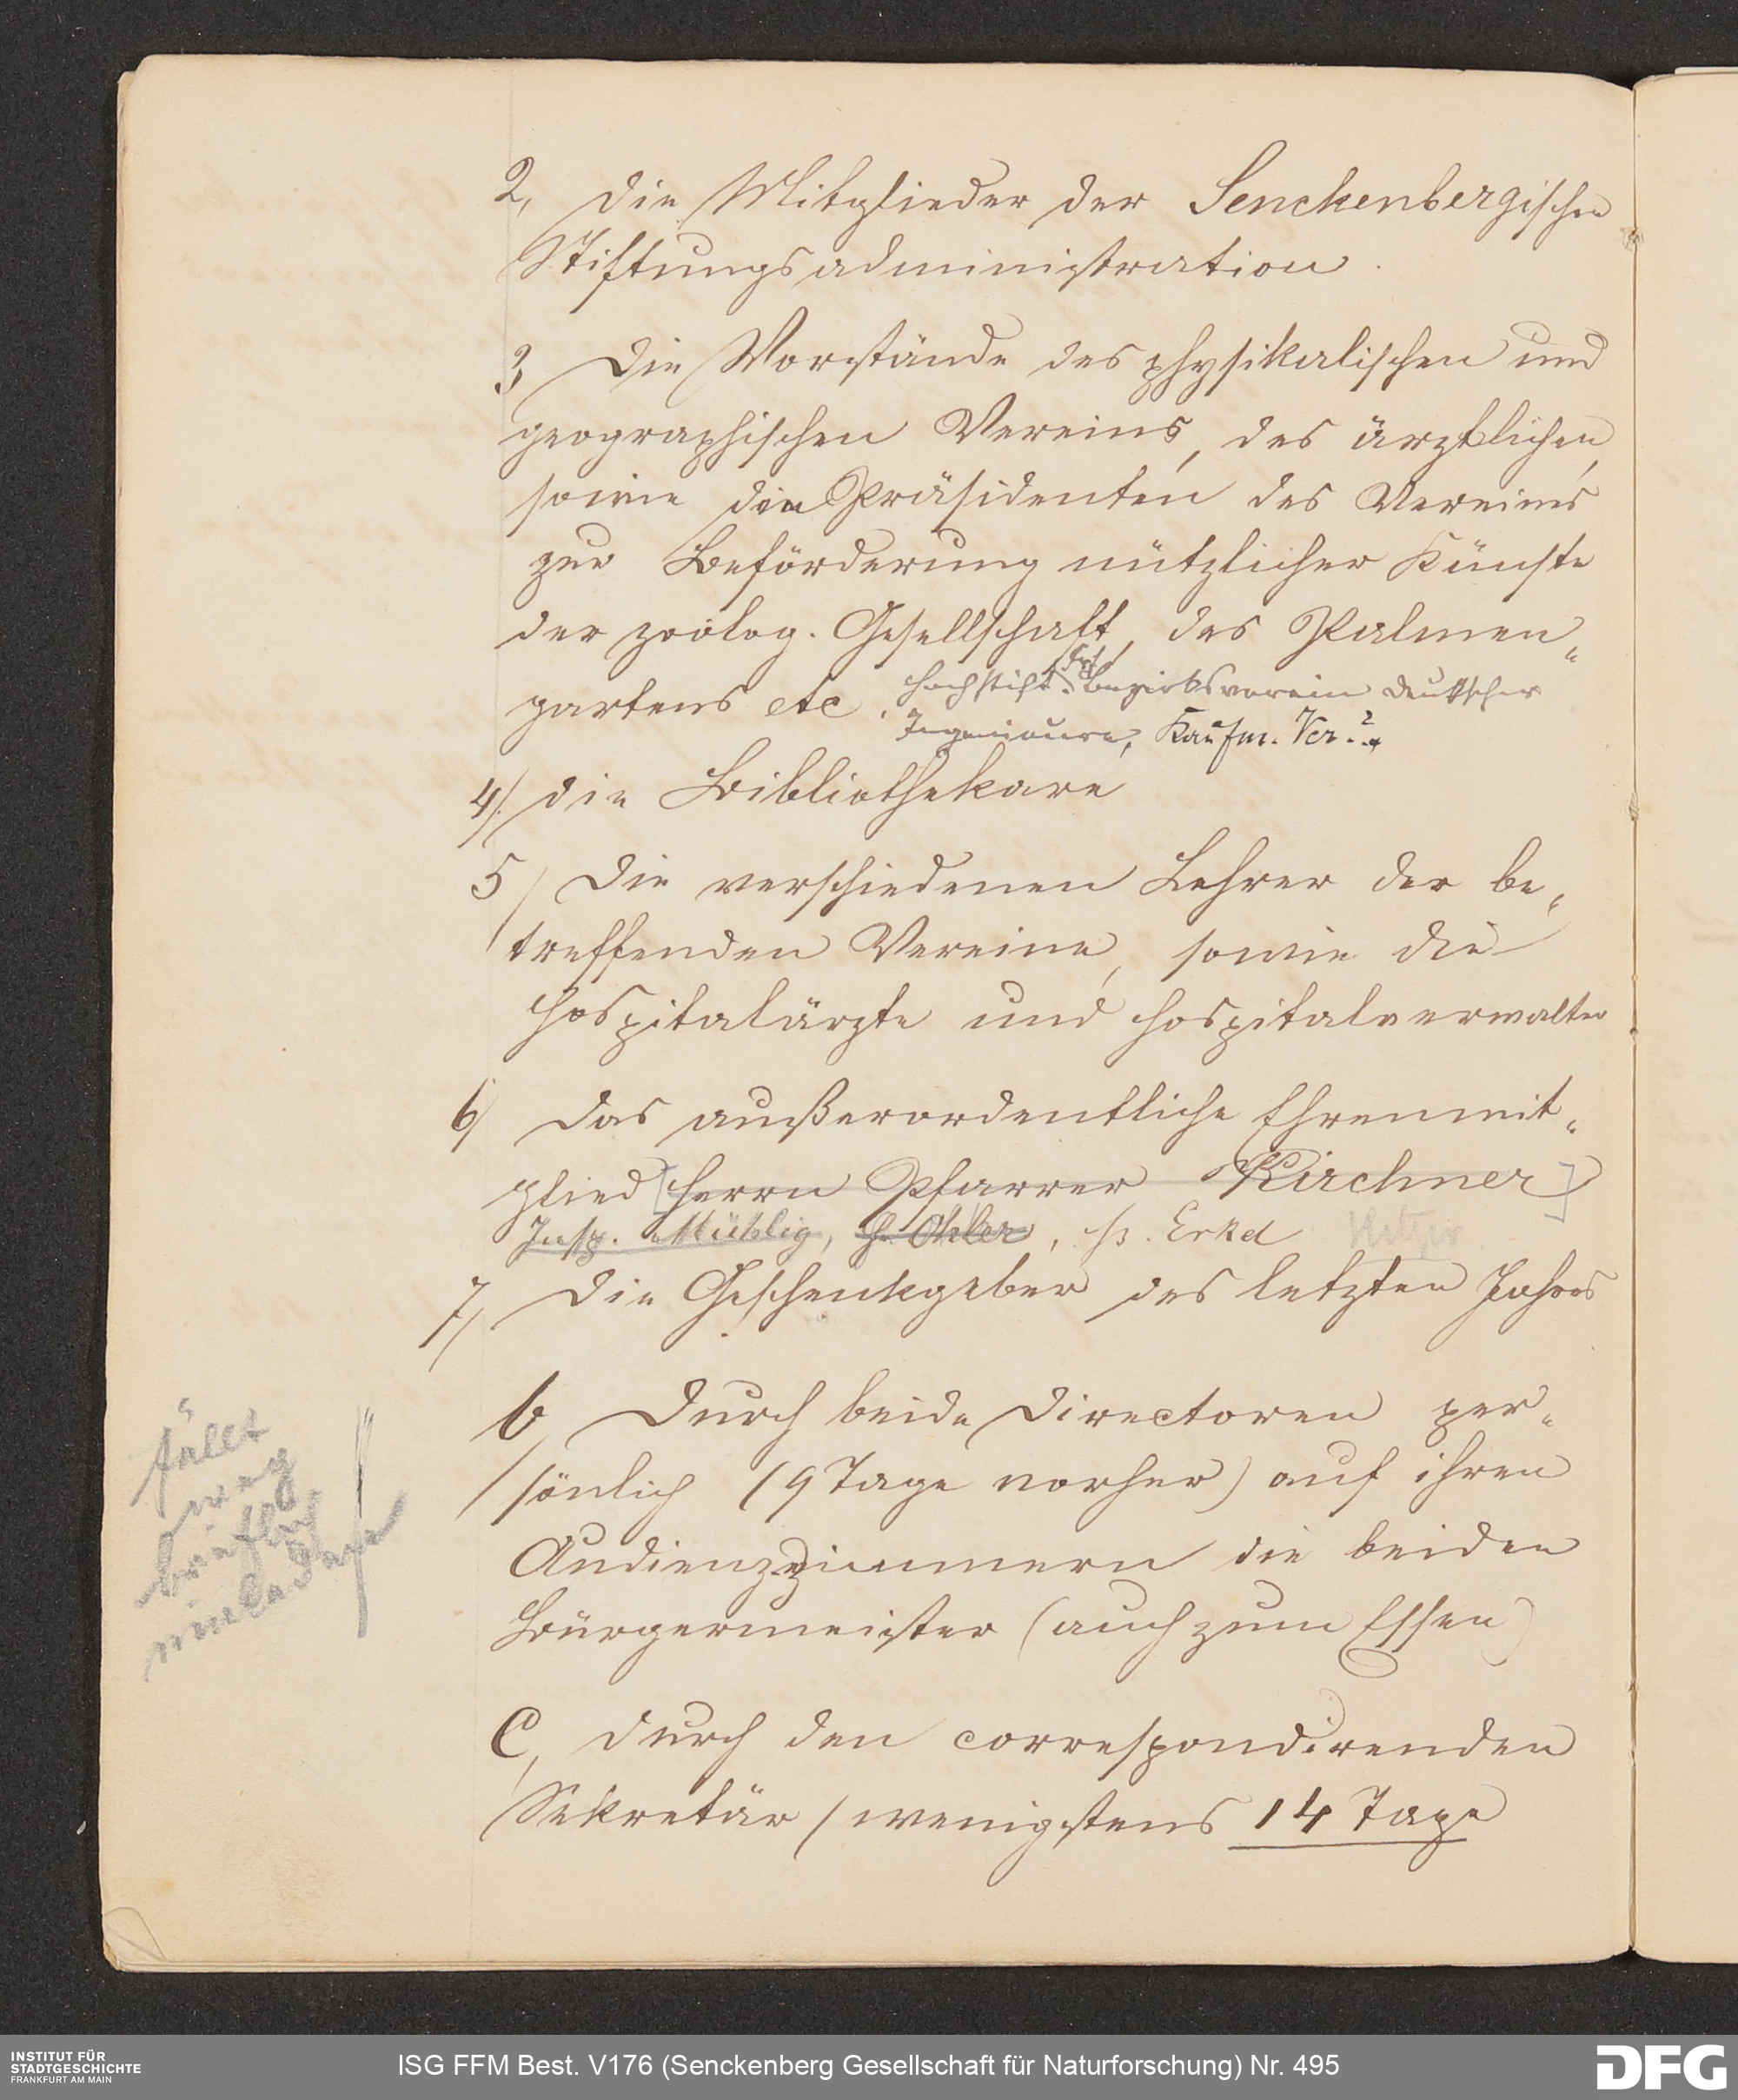 2, die Mitglieder der Senckenbergischen
Stiftungsadministration.
3, die Vorstände des physikalischen und
geographischen Vereins, des ärztlichen,
sowie die Präsidenten des Vereins
zur Beförderung nützlicher Künste
der zoolog. Gesellschaft, des Palmen„
gartens etc. Hochstift. Bezirksverein deutscher
Ingenieure, Kaufm. Ver.?
4/. die Bibliothekare
5/ die verschiedenen Lehrer der be„
treffenden Vereine, sowie die
Hospitalärzte und Hospitalverwalter
6/ das außerordentliche Ehrenmit„
glied [Herrn Pfarrer Kirchner]
Insp. Mühlig, H. Ohler, H. Erkel
7/ die Geschenkgeber des letzten Jahres
b, durch beide Directoren per„
sönlich (9 Tage vorher) auf ihren
Audienzzimmern die beiden
Bürgermeister (auch zum Essen)
fällt
weg
einladen
C, durch den correspondirenden
Sekretär (wenigstens 14 Tage
INSTITUT FÜR
STADTGESCHICHTE
FRANKFURT AM MAIN
ISG FFM Best. V176 (Senckenberg Gesellschaft für Naturforschung) Nr. 495
DFG